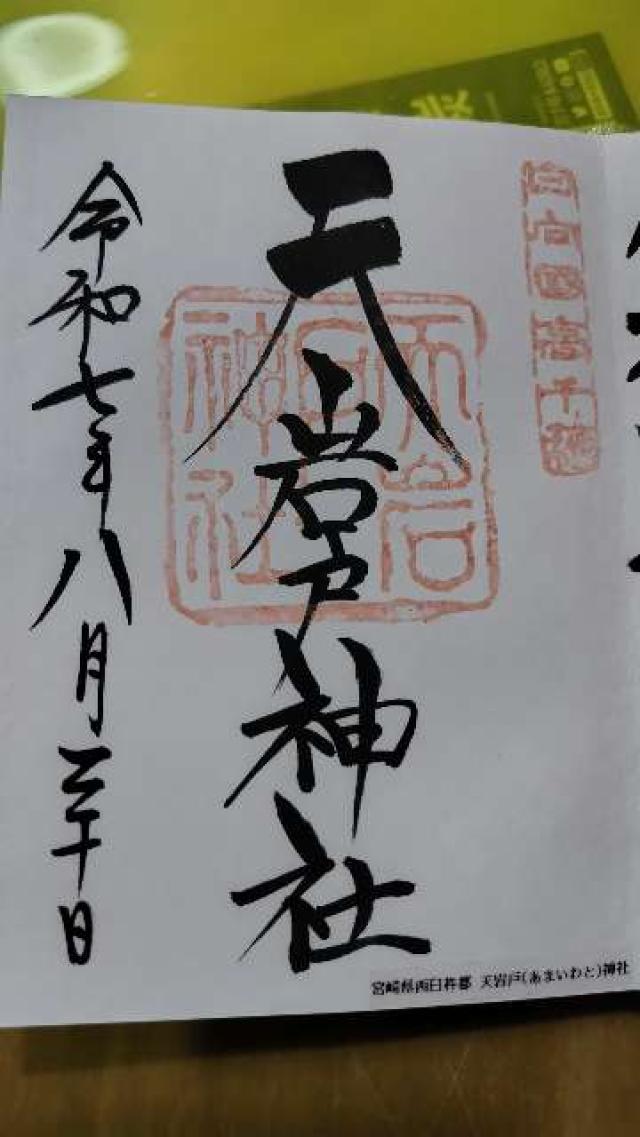 日向国高千穂
天岩戸神社
天岩戸神社
令和七年八月三十日
宮崎県西臼杵郡 天岩戸(あまいわと)神社